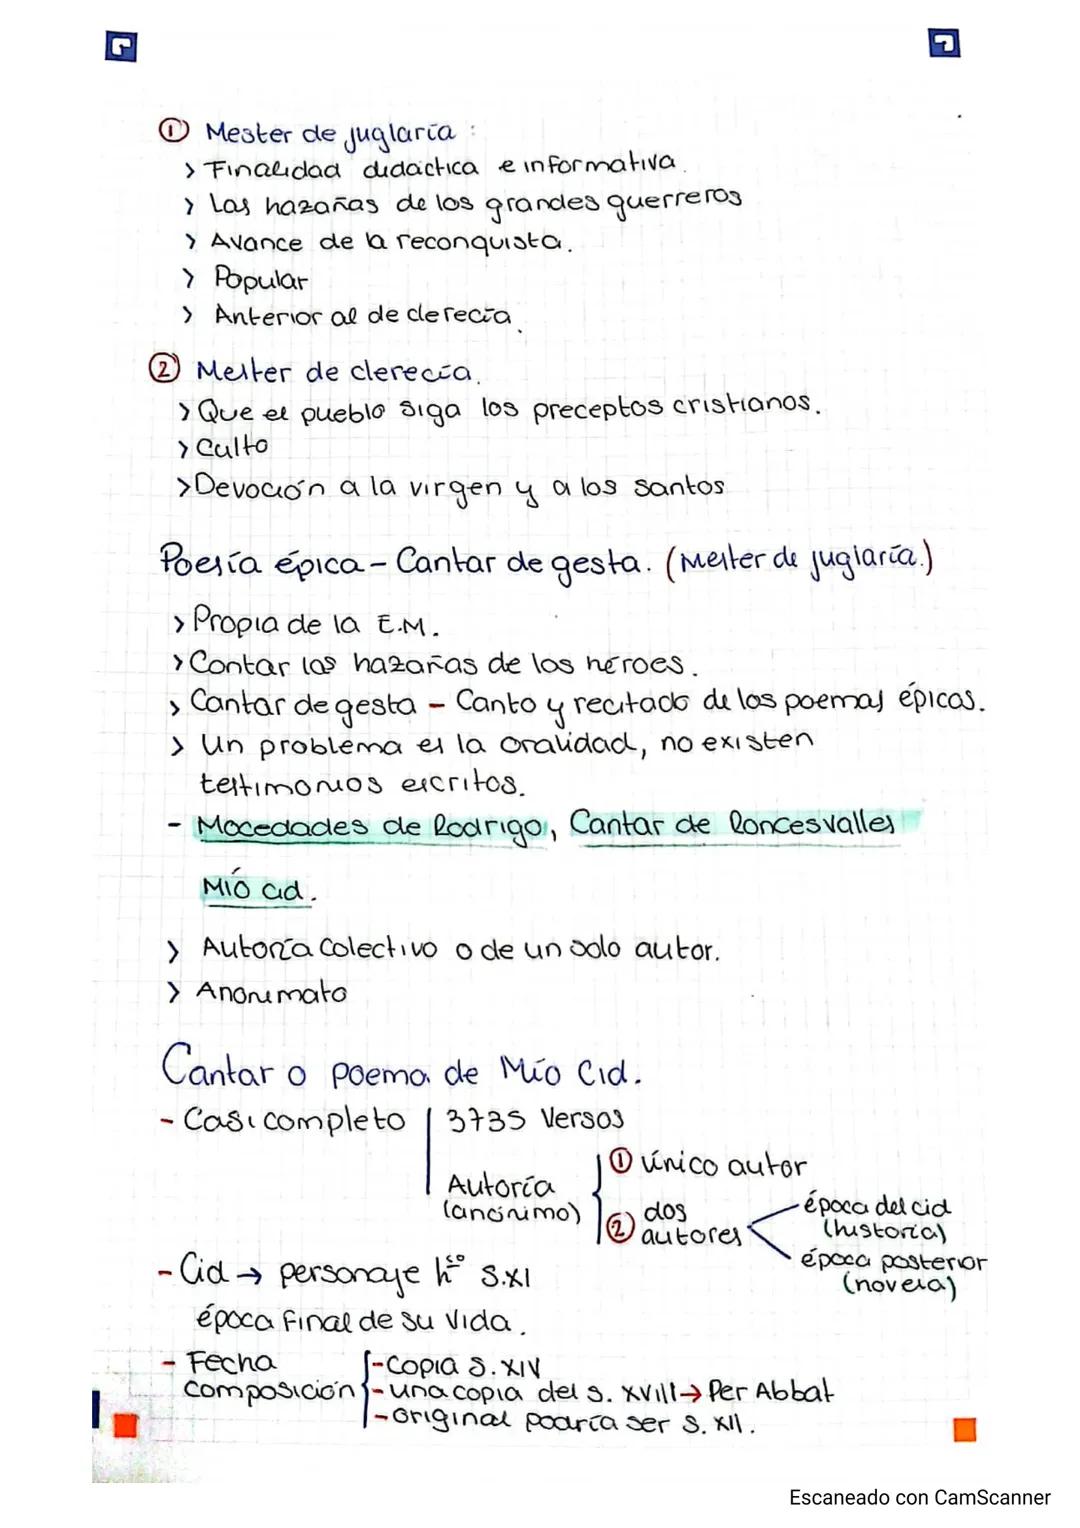 ① Mester de juglaría :
> Finalidad didáctica e informativa.
> Las hazañas de los grandes guerreros
> Avance de la reconquista.
> Popular
> Anterior al de clerecía.
② Mester de clerecía.
> Que el pueblo siga los preceptos cristianos.
> Culto
> Devoción a la virgen y a los santos
Poesía épica - Cantar de gesta. (Mester de juglaría.)
> Propia de la E.M.
> Contar las hazañas de los héroes.
> Cantar de gesta - Canto y recitado de los poemas épicos.
> Un problema es la oralidad, no existen
testimonios escritos.
- Mocedades de Rodrigo, Cantar de Roncesvalles
Mío Cid.
> Autoría Colectivo o de un solo autor.
> Anonimato
Cantar o poema de Mío Cid.
- Casi completo | 3735 Versos
Autoría (anónimo)
① único autor
② dos autores
época del cid (historia)
época posterior (novela)
- Cid → personaje hco S.XI
época final de su vida.
- Fecha composición
- Copia S. XIV
- una copia del s. XVIII → Per Abbat
- original podría ser S. XII.
Escaneado con CamScanner